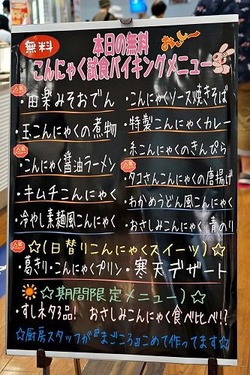 無料
本日の無料
おいしー
こんにゃく試食バイキングメニュー
・田楽みそおでん
・こんにゃくソース焼きそば
・玉こんにゃくの煮物
・特製こんにゃくカレー
人気
・こんにゃく醤油ラーメン
・糸こんにゃくのきんぴら
・キムチこんにゃく
・タコさんこんにゃくの唐揚げ
・冷やし素麺風こんにゃく
・わかめうどん風こんにゃく
・おさしみこんにゃく青のり
☆(日替りこんにゃくスイーツ)☆
・葛きり・こんにゃくプリン・寒天デザート
☆期間限定メニュー)☆
・すしネタ3品! おさしみこんにゃく食べ比べ!?
☆厨房スタッフが『まごころ』こめて作ってます☆